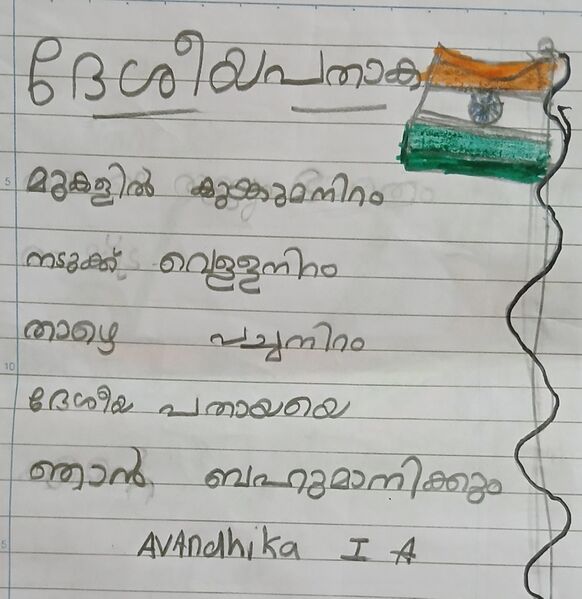 ദേശീയപതാക
മുകളിൽ കുങ്കുമനിറം
നടുക്ക് വെള്ളനിറം
താഴെ പച്ചനിറം
ദേശീയ പതായയെ
ഞാൻ ബഹുമാനിക്കും
AVANdhika I A